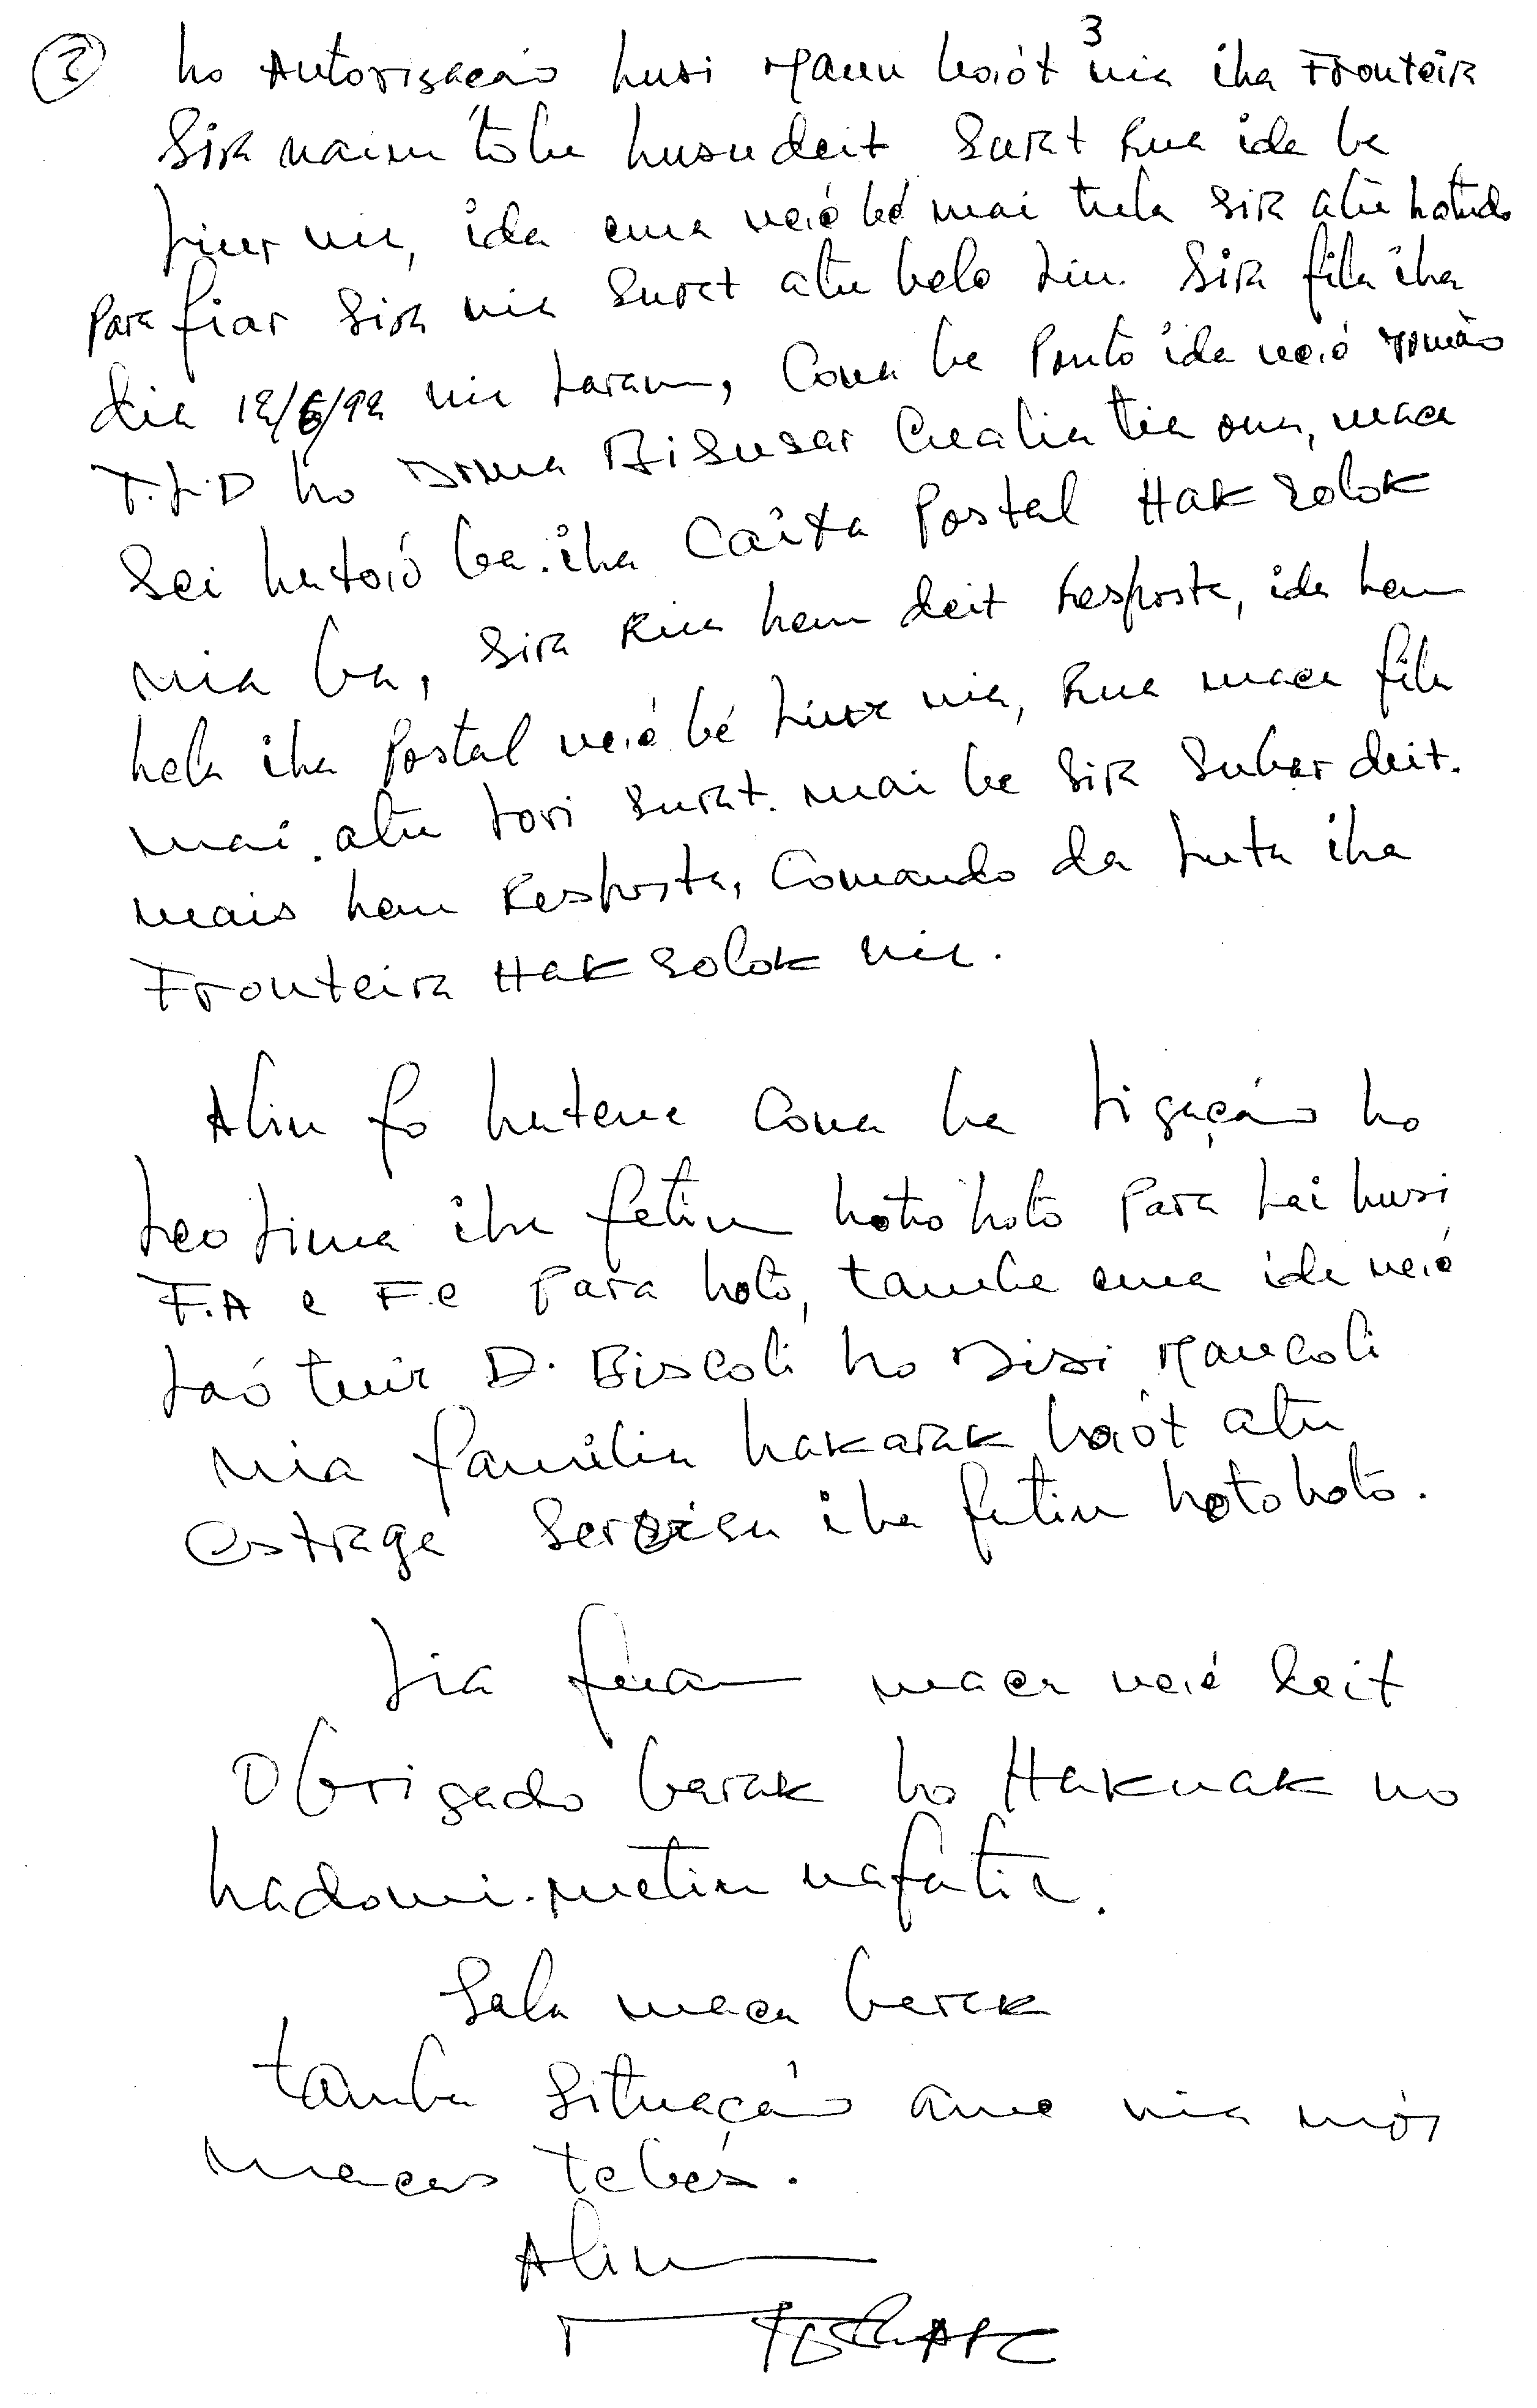 ② ho Autorização husi Maun boiót 3 nia iha Fronteira
Sira nain tolu husu deit Surat Rua ida ba
Liur nia, ida ema neié bé mai tula Sira atu hatudo
Para fiar Sira nia Surat atu belo Liu. Sira fila iha
dia 12/6/92 nia Laran, Cona ba Ponto ida neié Romão
T.L.D ho Irma Bisusar Cualia tia ona, maca
Sei hatoió ba. iha Caixa Postal HAK SOLOK
nia ba, Sira Rua hein deit Resposta, ida hein
hela iha Postal neié bé Liur nia, Rua maca fila
mai. atu Lori Surat. mai be Sira Subar deit.
mais hein Resposta, Comando da Luta iha
Fronteira HAK SOLOK nia.
Alin fo hatene Cona ba Ligação ho
Leo Lima iha fatin hoto hoto Para Lai husi
F.A e F.C Para hoto, tamba ema ida neié
Laó tuir D. Biscoli ho Sisi Maucoli
nia familia hakarak boiót atu
estraga Servisu iha fatin hoto hoto.
Lia fuan maca neié deit
Obrigado barak ho Haknak no
hadomi. metin nafatin.
Sala maca barak
tamba Situação ame nia mós
macas tebes.
Alin